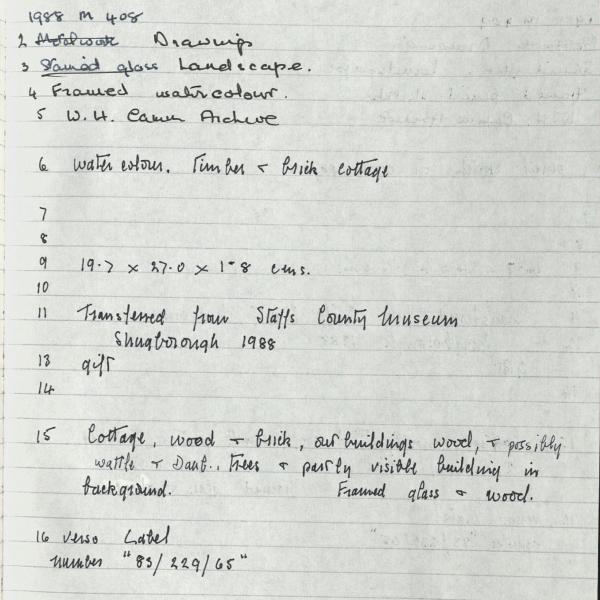 1988 M 408
2 Metalwork Drawings
3 Stained glass Landscape.
4 Framed watercolour.
5 W. H. Archive
6 watercolour. Timber + brick cottage
7
8
9 19.7 x 27.0 x 1-8 cms.
10
11 Transferred from Staffs County Museum
Shugborough 1988
13 gift
14
15 Cottage, wood + brick, outbuildings wood, + possibly
wattle + Daub.. Trees + partly visible building in
background. Framed glass + wood.
16 verso Label
number "83/229/65"